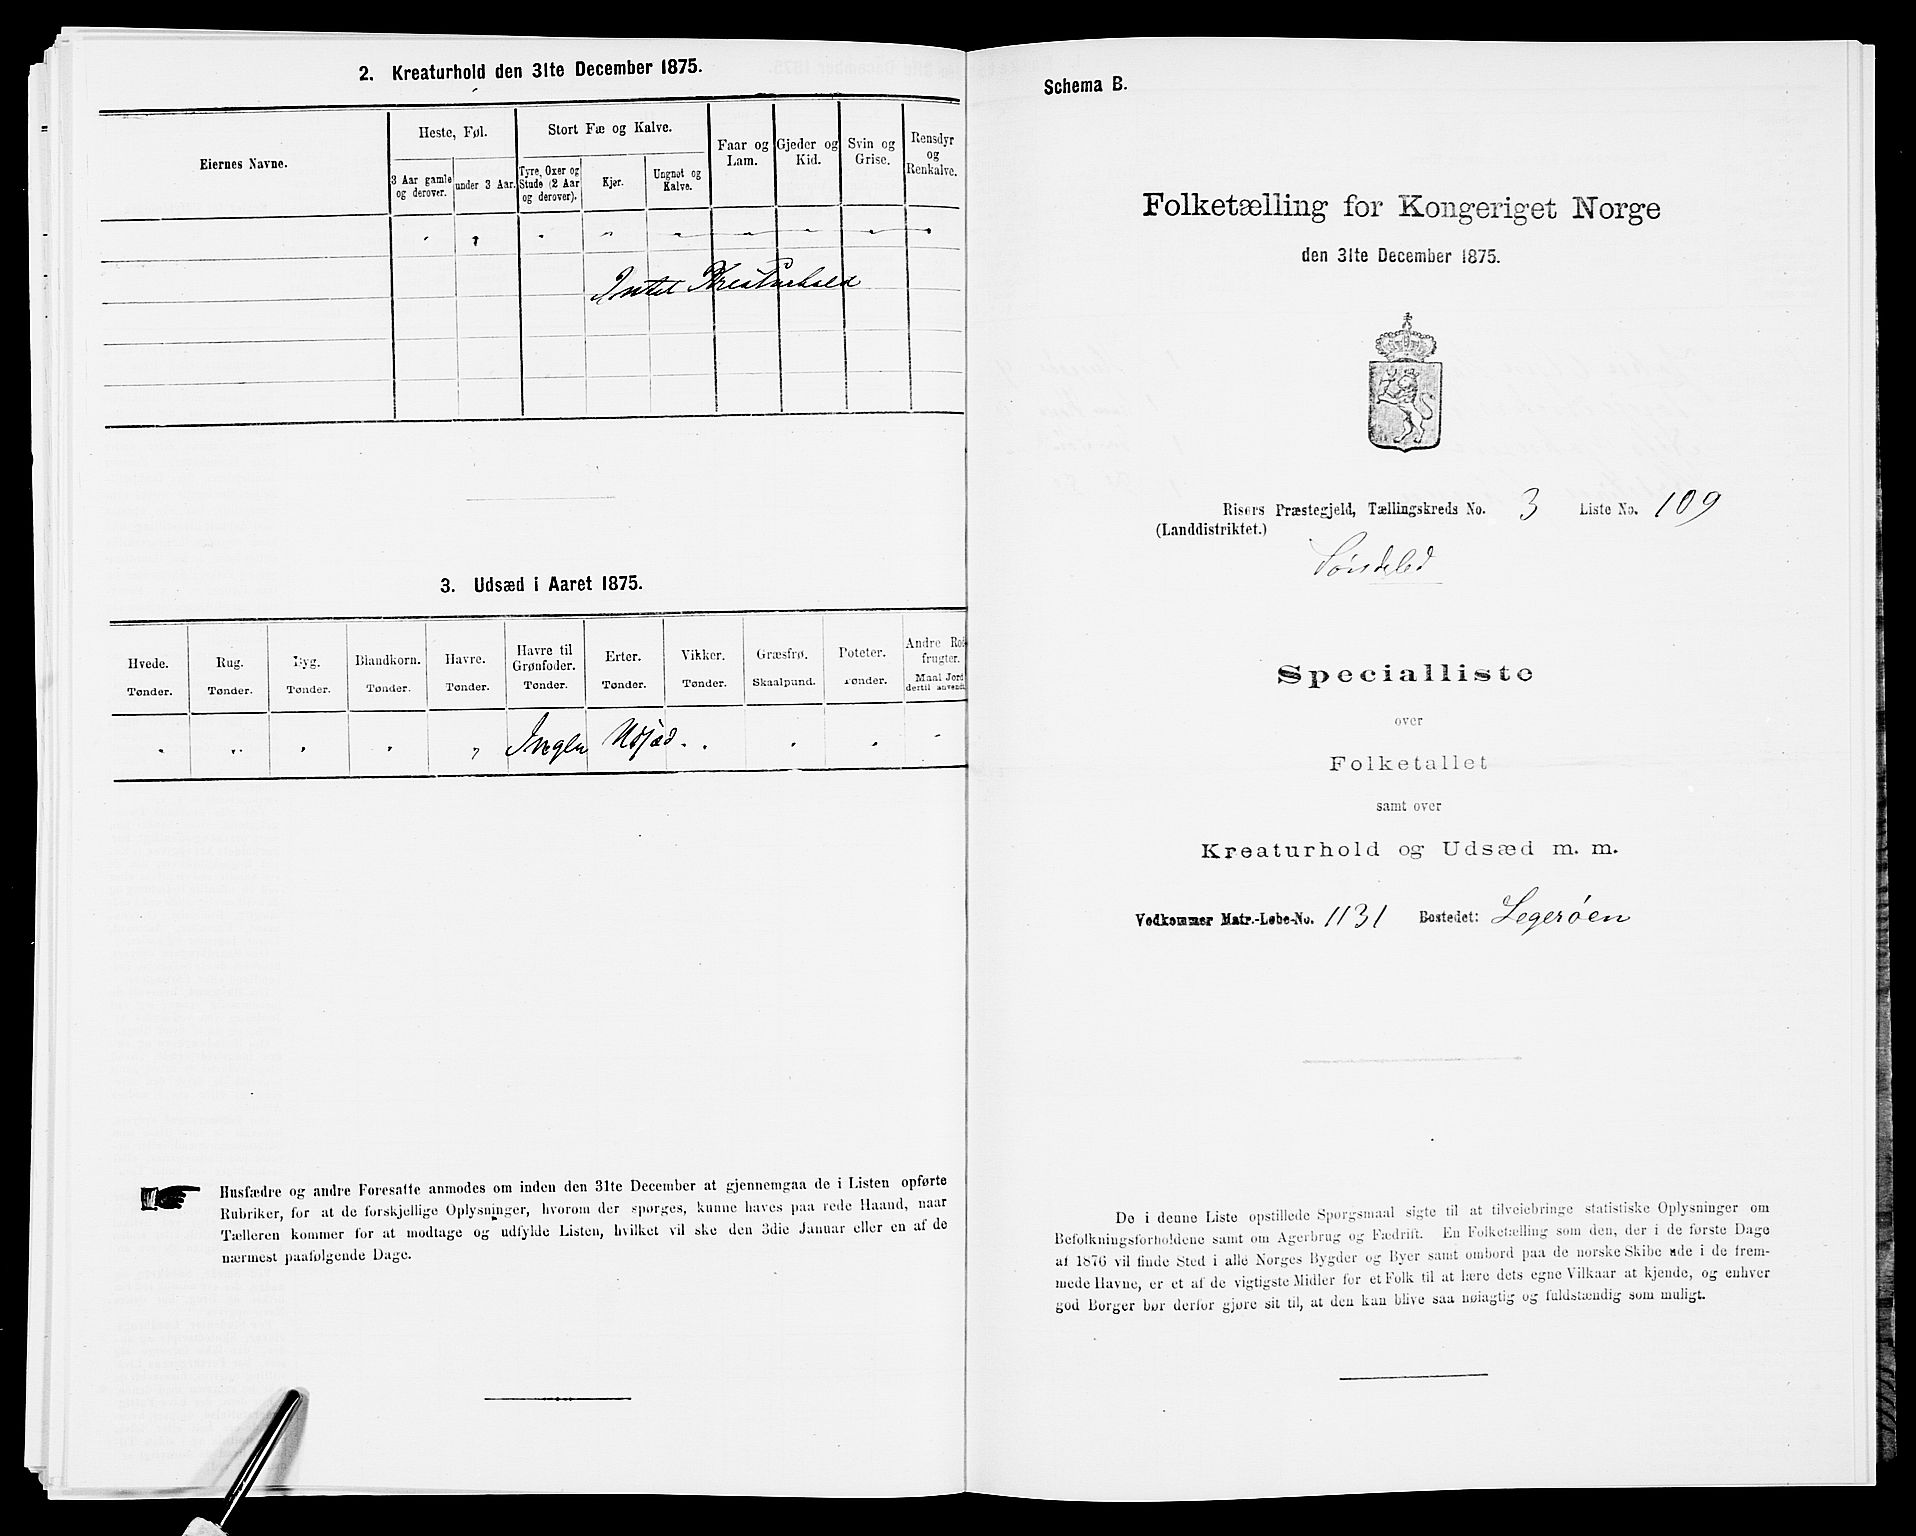 2. Kreaturhold den 31te December 1875.
Eiernes Navne.
Heste, Føl.
Stort Fæ og Kalve.
Faar og
Lam.
Gjeder og
Kid.
Svin og
Grise.
Rensdyr
og
Renkalve.
3 Aar gamle
og derover.
under 3 Aar.
Tyre, Oxer og
Stude (2 Aar
og derover).
Kjør.
Ungnøt og
Kalve.
Intet Kreaturhold
3. Udsæd i Aaret 1875.
Hvede.
Tønder.
Rug.
Tønder.
Byg.
Tønder.
Blandkorn.
Tønder.
Havre.
Tønder.
Havre til
Grønfoder.
Tønder.
Erter.
Tønder.
Vikker.
Tønder.
Græsfrø.
Skaalpund.
Poteter.
Tønder.
Andre Rod-
frugter.
Maal Jord
dertil anvendt
Ingen Udsæd.
Husfædre og andre Foresatte anmodes om inden den 31te December at gjennemgaa de i Listen opførte
Rubriker, for at de forskjellige Oplysninger, hvorom der spørges, kunne haves paa rede Haand, naar
Tælleren kommer for at modtage og udfylde Listen, hvilket vil ske den 3die Januar eller en af de
nærmest paafølgende Dage.
Schema B.
Folketælling for Kongeriget Norge
den 31te December 1875.
Risørs Præstegjeld, Tællingskreds No. 3 Liste No. 109
(Landdistriktet.)
Søndeled
Specialliste
over
Folketallet
samt over
Kreaturhold og Udsæd m. m.
Vedkommer Matr.-Løbe-No. 1131 Bostedet: Legerøen
De i denne Liste opstillede Spørgsmaal sigte til at tilveiebringe statistiske Oplysninger om
Befolkningsforholdene samt om Agerbrug og Fædrift. En Folketælling som den, der i de første Dage
af 1876 vil finde Sted i alle Norges Bygder og Byer samt ombord paa de norske Skibe ude i de frem-
mede Havne, er et af de vigtigste Midler for et Folk til at lære dets egne Vilkaar at kjende, og enhver
god Borger bør derfor gjøre sit til, at den kan blive saa nøiagtig og fuldstændig som muligt.